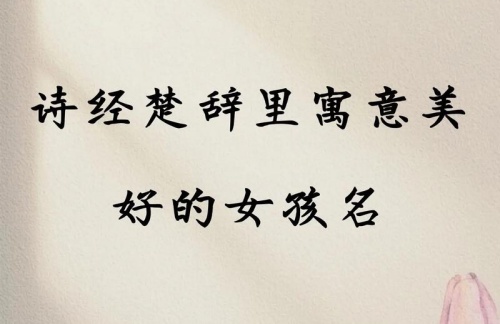 诗经楚辞里寓意美
好的女孩名